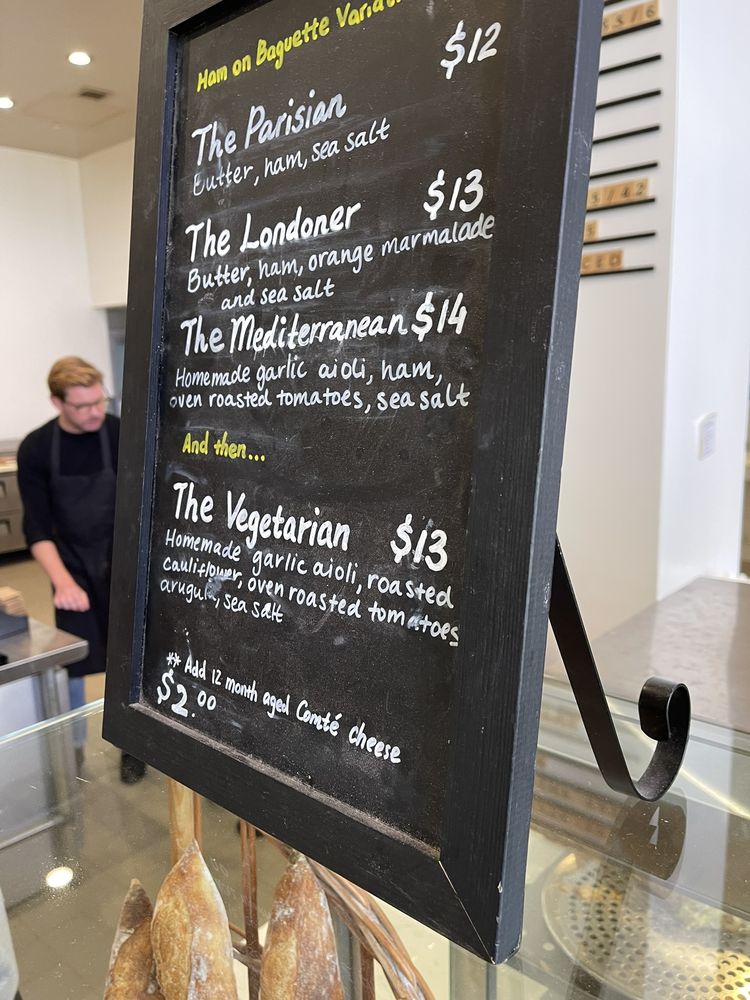 Ham on Baguette
$12
The Parisian
Butter, ham, sea salt
The Londoner $13
Butter, ham, orange marmalade
and sea salt
The Mediterranean $14
Homemade garlic aioli, ham,
oven roasted tomatoes, sea salt
And then...
The Vegetarian $13
Homemade garlic aioli, roasted
cauliflower, oven roasted tomatoes
arugula, sea salt
** Add 12 month aged Comté cheese
$2.00